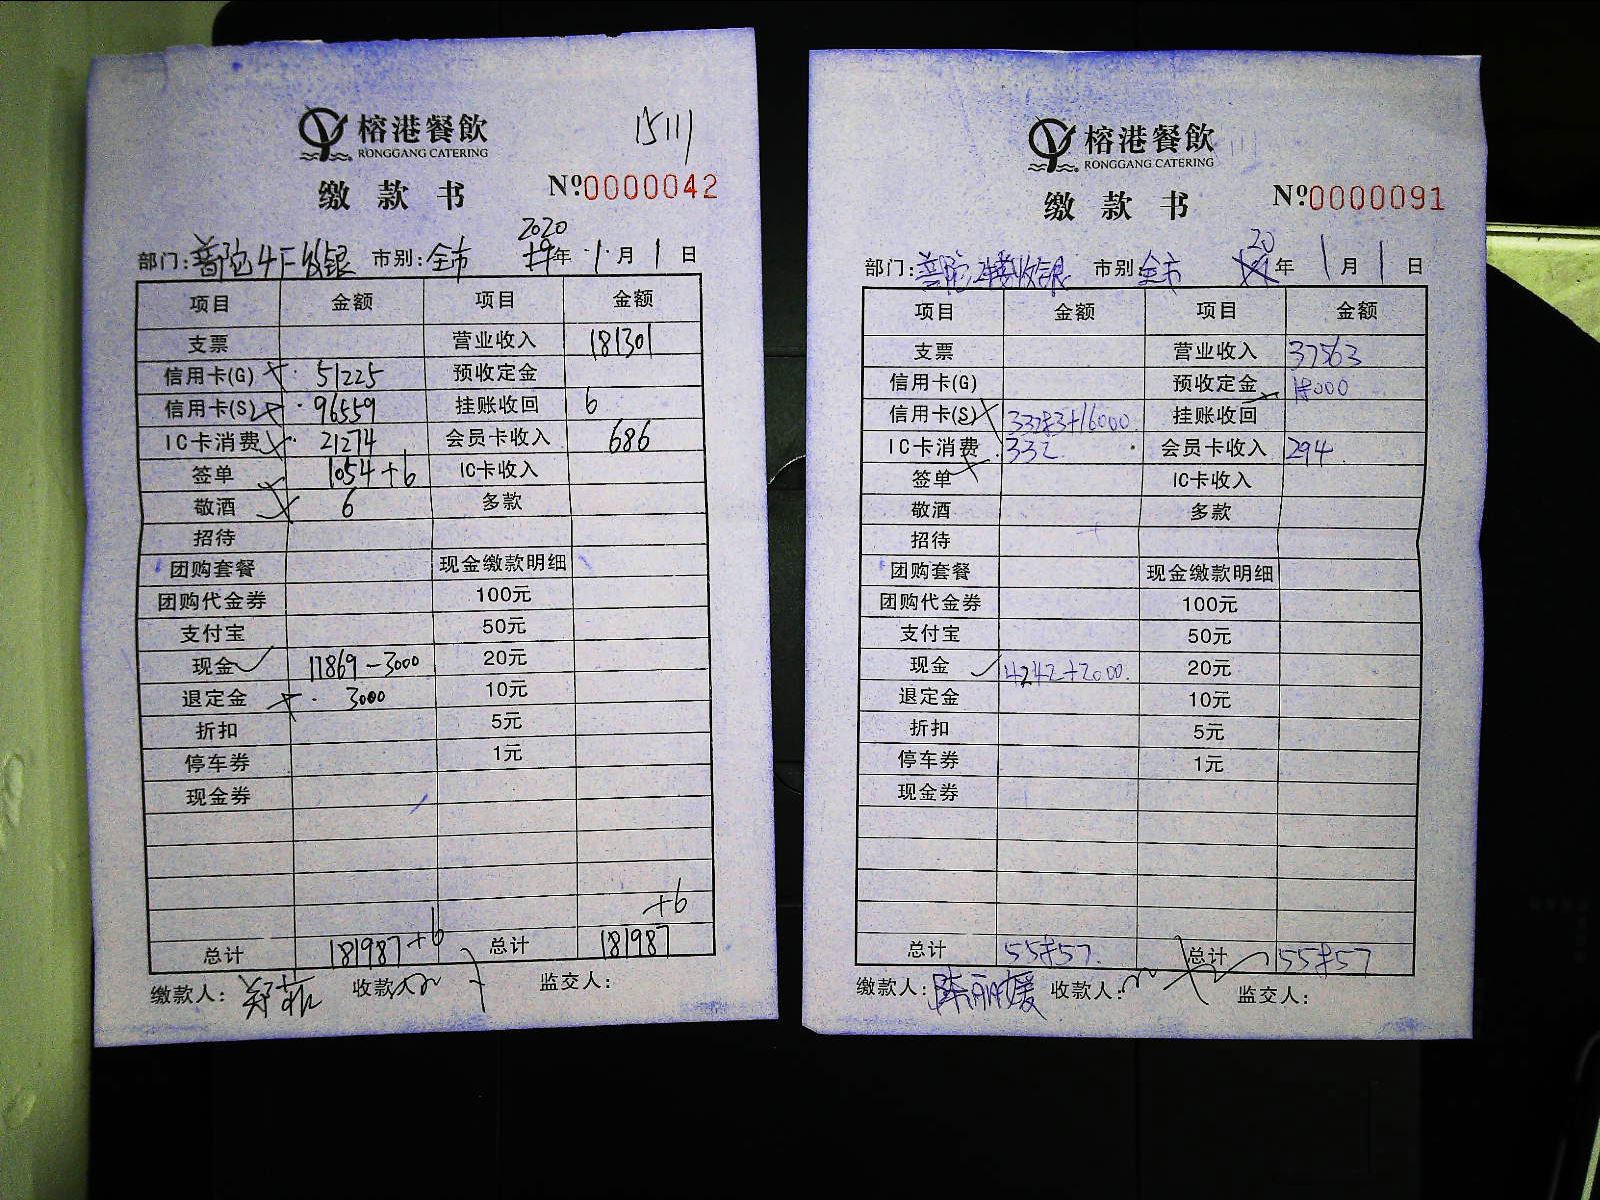 榕港餐飲
RONGGANG CATERING
15111
缴款书
Nº0000042
部门:普陀4F收银 市别:全市 2020年1月1日
项目 金额 项目 金额
支票 营业收入 181301
信用卡(G) 51225 预收定金
信用卡(S) 96559 挂账收回 6
IC卡消费 21274 会员卡收入 686
签单 1054+6 IC卡收入
敬酒 6 多款
招待
团购套餐 现金缴款明细
团购代金券 100元
支付宝 50元
现金 11869-3000 20元
退定金 3000 10元
折扣 5元
停车券 1元
现金券
+6
总计 181987+6 总计 181987
缴款人: 郑菲 收款人: 监交人:
榕港餐飲
RONGGANG CATERING
缴款书
Nº0000091
部门:普陀 收银 市别:全市 20年1月1日
项目 金额 项目 金额
支票 营业收入 37563
信用卡(G) 预收定金 18000
信用卡(S) 挂账收回
IC卡消费 332 会员卡收入 294
签单 IC卡收入
敬酒 多款
招待
团购套餐 现金缴款明细
团购代金券 100元
支付宝 50元
现金 4242+2000 20元
退定金 10元
折扣 5元
停车券 1元
现金券
总计 55857 总计 55857
缴款人: 陈丽媛 收款人: 监交人: